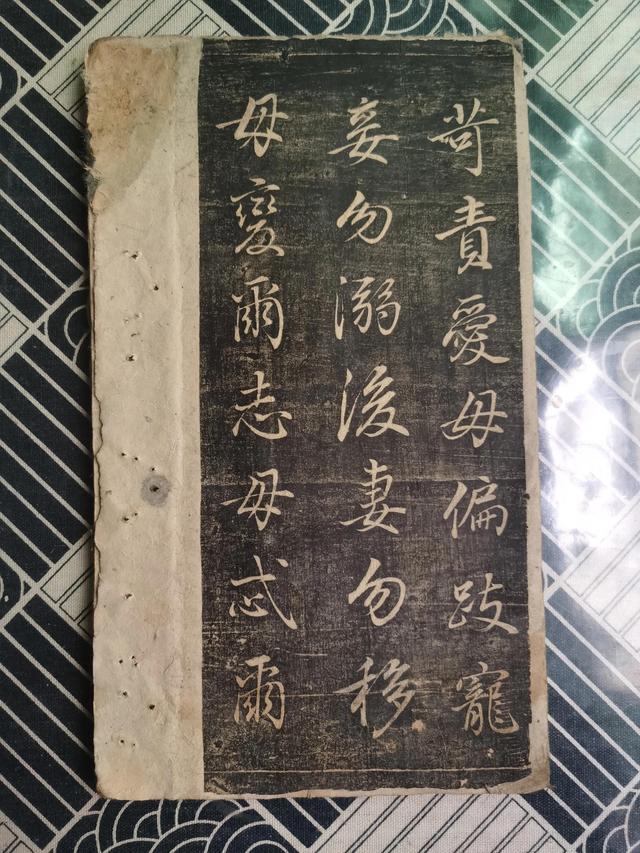 苛責愛毋偏跂寵
妾勿溺後妻勿移
毋變爾志毋忒爾